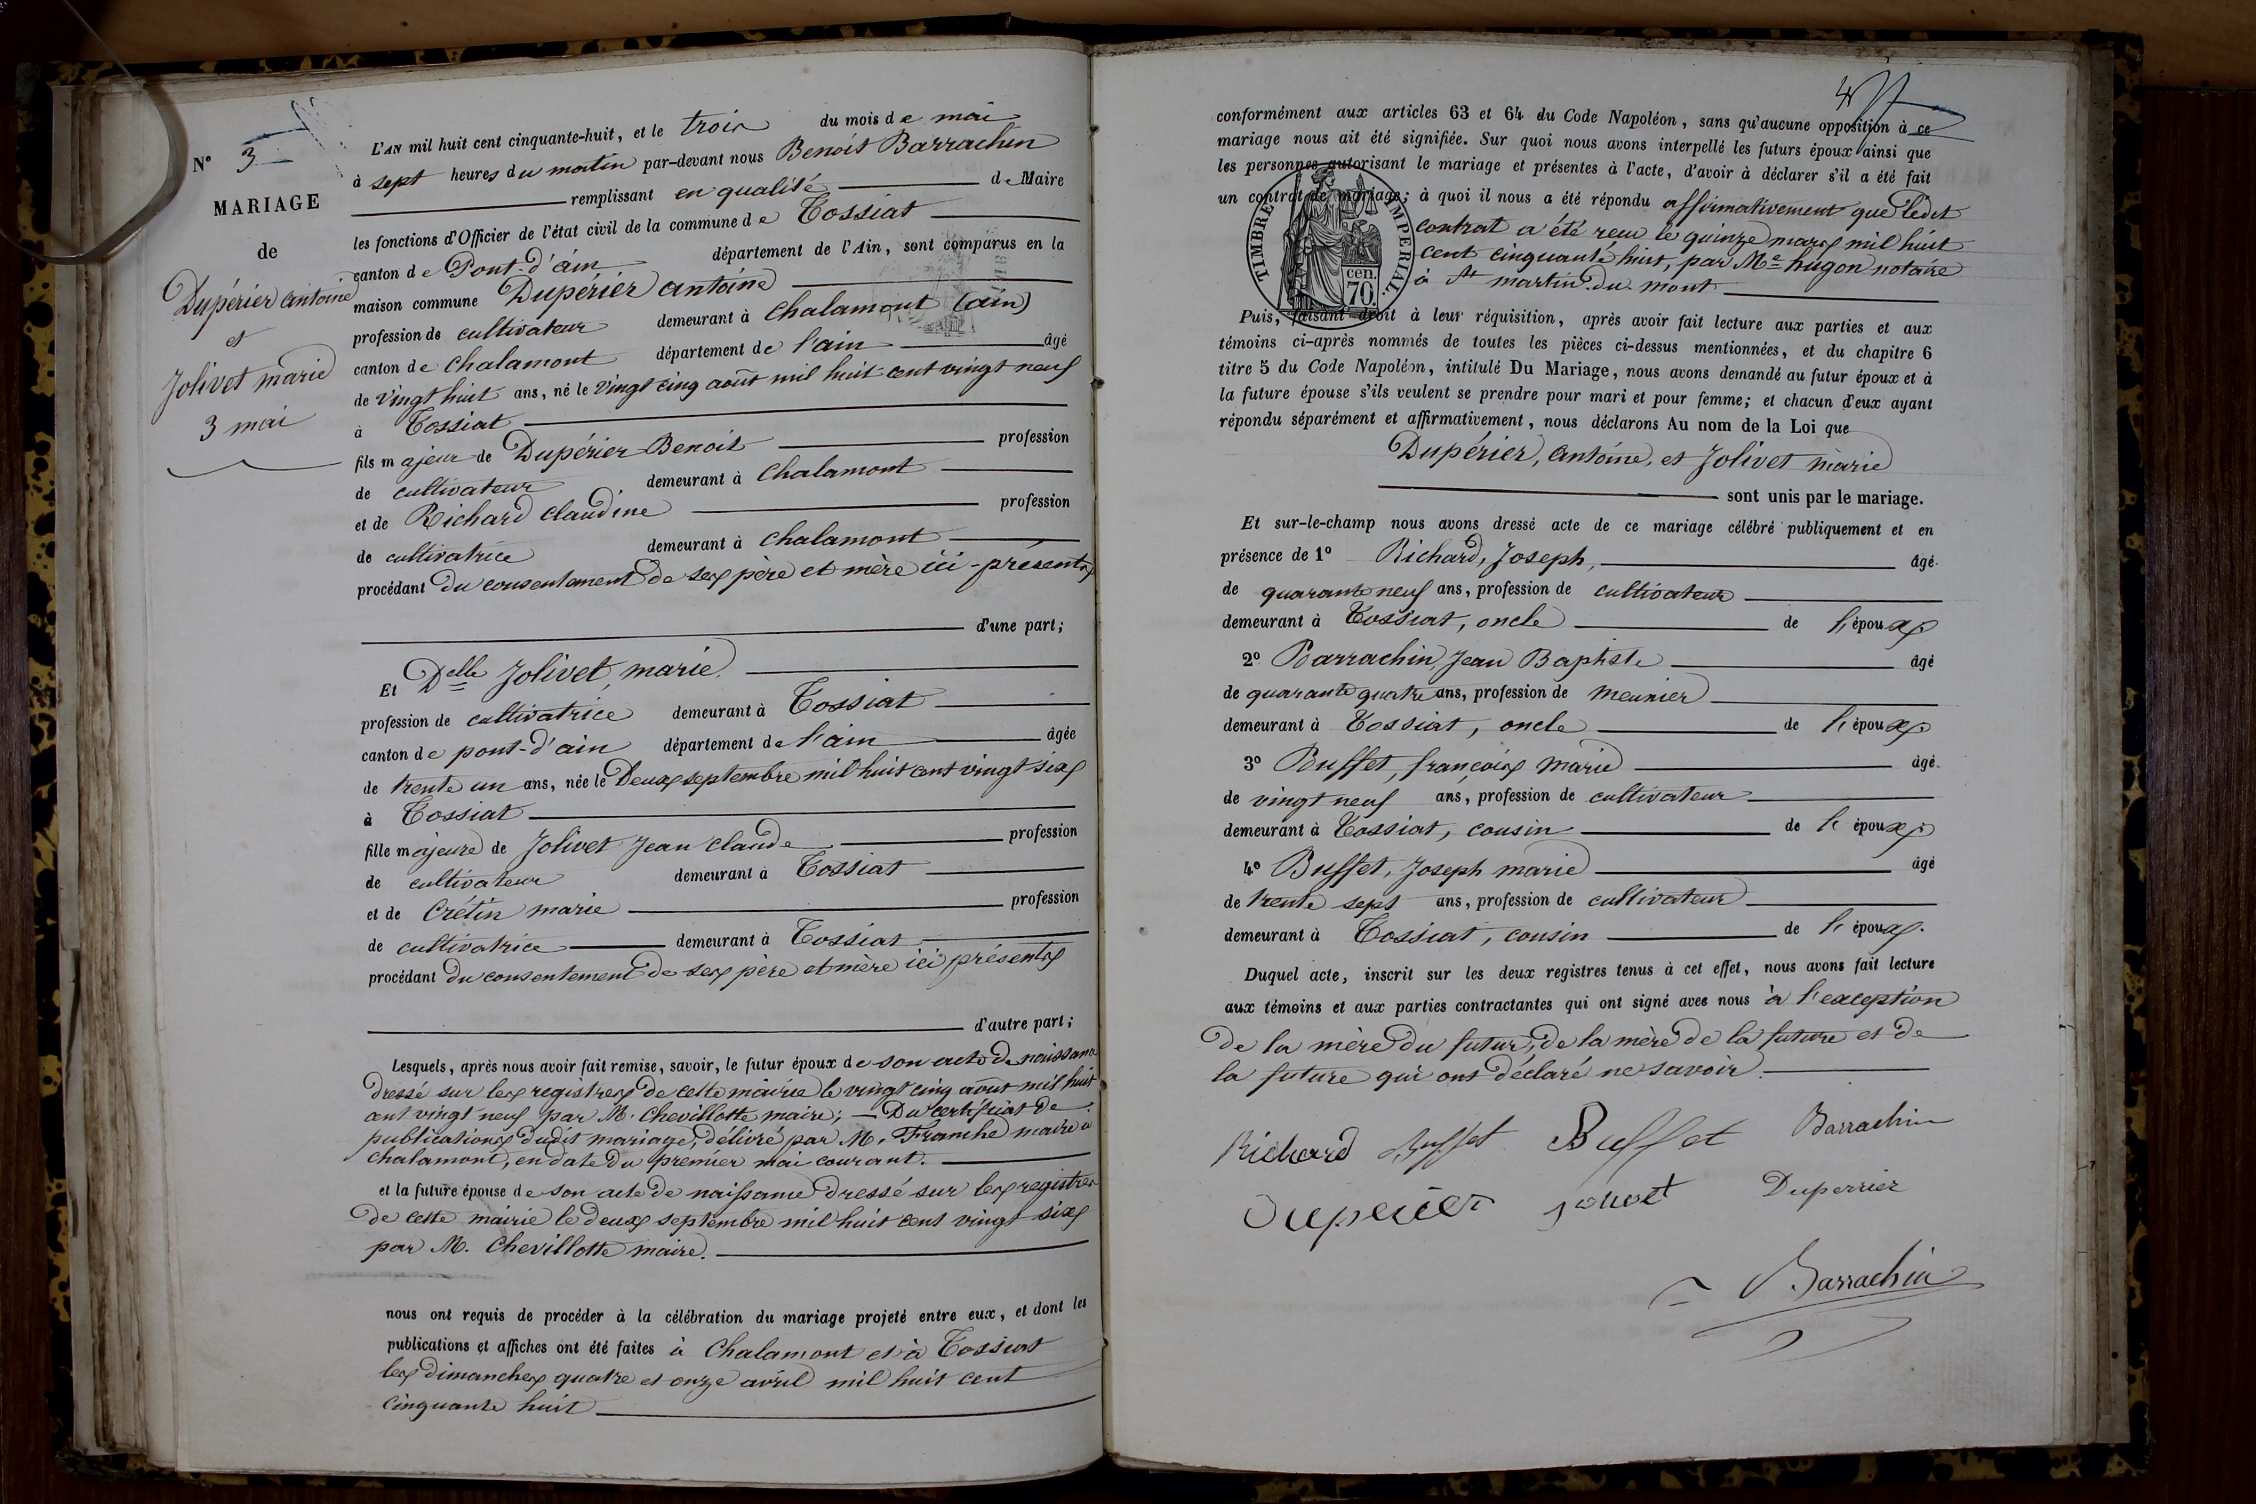 N° 3
MARIAGE
de
Dupérier antoine
et
Jolivet marie
3 mai
L'AN mil huit cent cinquante-huit, et le trois du mois de mai
à sept heures du matin par-devant nous Benoit Barrachin
remplissant en qualité de Maire
les fonctions d'Officier de l'état civil de la commune de Tossiat
canton de Pont-d'ain département de l'Ain, sont comparus en la
maison commune Dupérier antoine
profession de cultivateur demeurant à Chalamont (ain)
canton de Chalamont département de l'ain âgé
de vingt huit ans, né le vingt cinq août mil huit cent vingt neuf
à Tossiat
fils majeur de Dupérier Benoit profession
de cultivateur demeurant à Chalamont
et de Richard Claudine profession
de cultivatrice demeurant à Chalamont
procédant du consentement de ses père et mère ici-présents
d'une part;
Et Delle Jolivet, marie
profession de cultivatrice demeurant à Tossiat
canton de pont-d'ain département de l'ain âgée
de trente un ans, née le Deux septembre mil huit cent vingt six
à Tossiat
fille majeure de Jolivet Jean Claude profession
de cultivateur demeurant à Tossiat
et de Crétin marie profession
de cultivatrice demeurant à Tossiat
procédant du consentement de ses père et mère ici présents
d'autre part;
Lesquels, après nous avoir fait remise, savoir, le futur époux de son acte de naissance
dressé sur les registres de cette mairie le vingt cinq août mil huit
cent vingt neuf par M. Chevillotte maire; — Du certificat de
publications dudit mariage, délivré par M. Franche maire à
chalamont, en date du premier mai courant.
et la future épouse de son acte de naissance dressé sur les registres
de cette mairie le deux septembre mil huit cent vingt six
par M. Chevillotte maire.
nous ont requis de procéder à la célébration du mariage projeté entre eux, et dont les
publications et affiches ont été faites à Chalamont et à Tossiat
les dimanches quatre et onze avril mil huit cent
cinquante huit
conformément aux articles 63 et 64 du Code Napoléon, sans qu'aucune opposition à ce
mariage nous ait été signifiée. Sur quoi nous avons interpellé les futurs époux ainsi que
les personnes autorisant le mariage et présentes à l'acte, d'avoir à déclarer s'il a été fait
un contrat de mariage; à quoi il nous a été répondu affirmativement que ledit
contrat a été reçu le quinze mars mil huit
cent cinquante huit, par Me hugon notaire
à St martin du mont
TIMBRE IMPERIAL
cen.
70.
Puis, faisant droit à leur réquisition, après avoir fait lecture aux parties et aux
témoins ci-après nommés de toutes les pièces ci-dessus mentionnées, et du chapitre 6
titre 5 du Code Napoléon, intitulé Du Mariage, nous avons demandé au futur époux et à
la future épouse s'ils veulent se prendre pour mari et pour femme; et chacun d'eux ayant
répondu séparément et affirmativement, nous déclarons Au nom de la Loi que
Dupérier, antoine, et Jolivet marie
sont unis par le mariage.
Et sur-le-champ nous avons dressé acte de ce mariage célébré publiquement et en
présence de 1° Richard, Joseph, âgé
de quarante neuf ans, profession de cultivateur
demeurant à Tossiat, oncle de l'époux
2° Barrachin, Jean Baptiste âgé
de quarante quatre ans, profession de meunier
demeurant à Tossiat, oncle de l'époux
3° Buffet, françois marie âgé
de vingt neuf ans, profession de cultivateur
demeurant à Tossiat, cousin de l'époux
4° Buffet, Joseph marie âgé
de trente sept ans, profession de cultivateur
demeurant à Tossiat, cousin de l'époux.
Duquel acte, inscrit sur les deux registres tenus à cet effet, nous avons fait lecture
aux témoins et aux parties contractantes qui ont signé avec nous à l'exception
de la mère du futur, de la mère de la future et de
la future qui ont déclaré ne savoir.
Richard Buffet Buffet Barrachin
Duperier Jolivet Duperrier
Barrachin